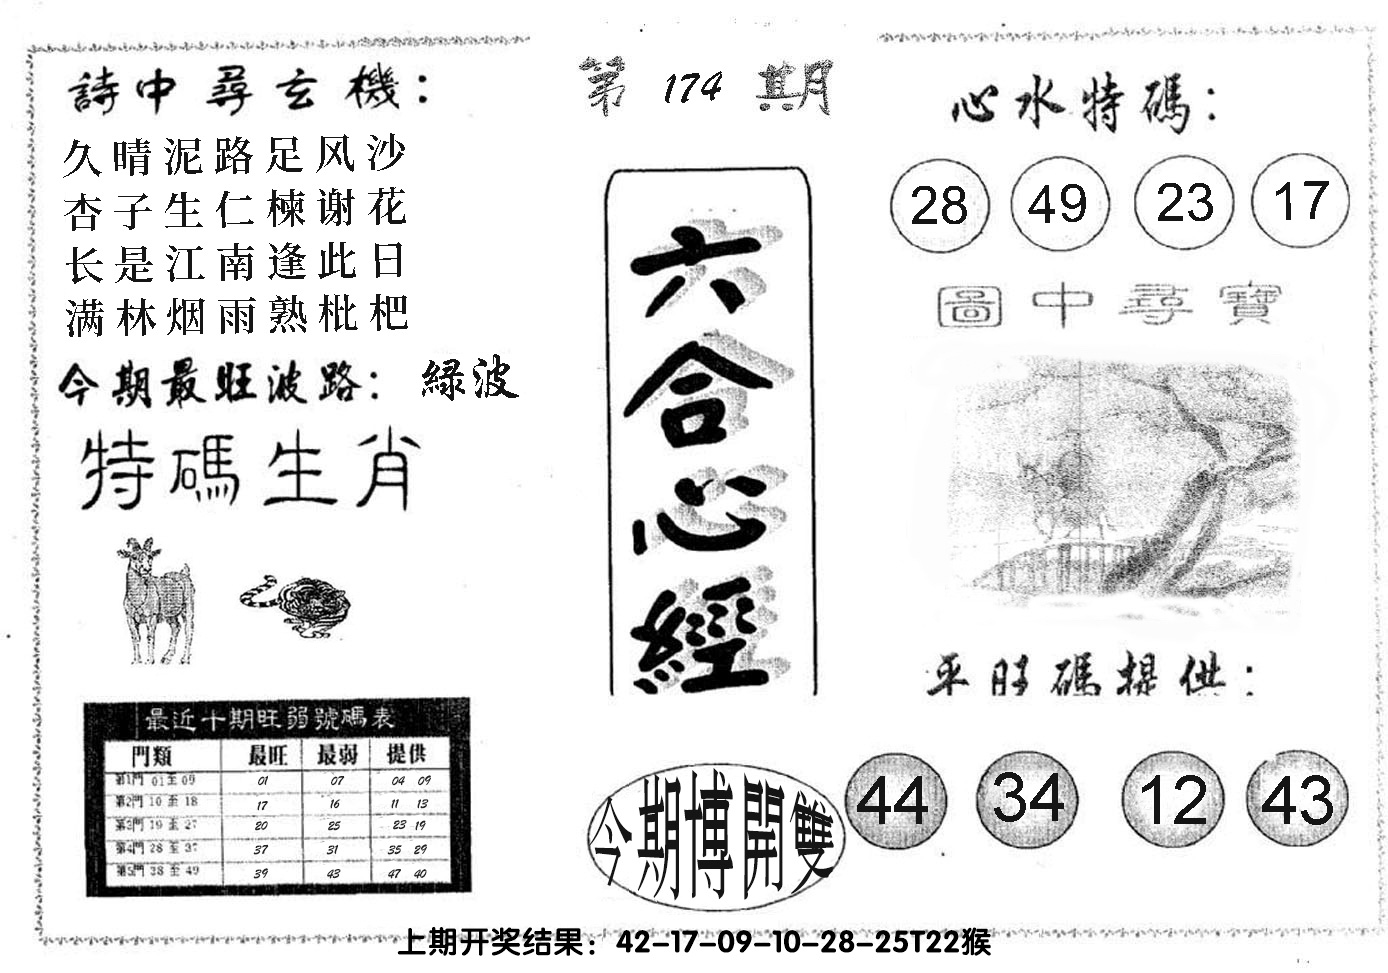 詩中尋玄機：
久晴泥路足风沙
杏子生仁楝谢花
长是江南逢此日
满林烟雨熟枇杷
今期最旺波路：綠波
特碼生肖
最近十期旺弱號碼表
門類 最旺 最弱 提供
第1門 01至09 01 07 04 09
第2門 10至18 17 16 11 13
第3門 19至27 20 25 23 19
第4門 28至37 37 31 35 29
第5門 38至49 39 43 47 40
第174期
六合心經
今期博開雙
心水特碼：
28 49 23 17
圖中尋寶
平旺碼提供：
44 34 12 43
上期开奖结果：42-17-09-10-28-25T22猴